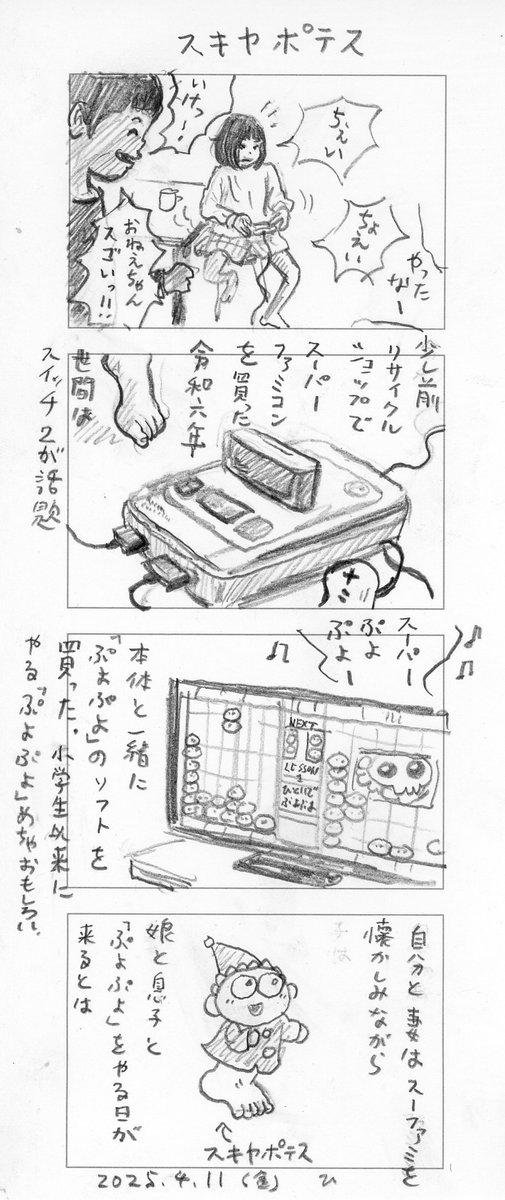 スキヤポテス
ちぇい
いけっ!
ちょえい
やったなー
おねえちゃん
スゴいっ!!
少し前
リサイクル
ショップで
スーパー
ファミコン
を買った
令和六年
世間は
スイッチ2が話題
ナミ
スーパー
ぷよ
ぷよー
本体と一緒に
「ぷよぷよ」のソフトを
買った。小学生以来に
やる「ぷよぷよ」めちゃおもしろい、
NEXT
LESSON
ひとりで
ぷよぷよ
自分と妻はスーファミを
懐かしみながら
娘と息子と
「ぷよぷよ」をやる日が
来るとは
スキヤポテス
2025.4.11(金) ひ